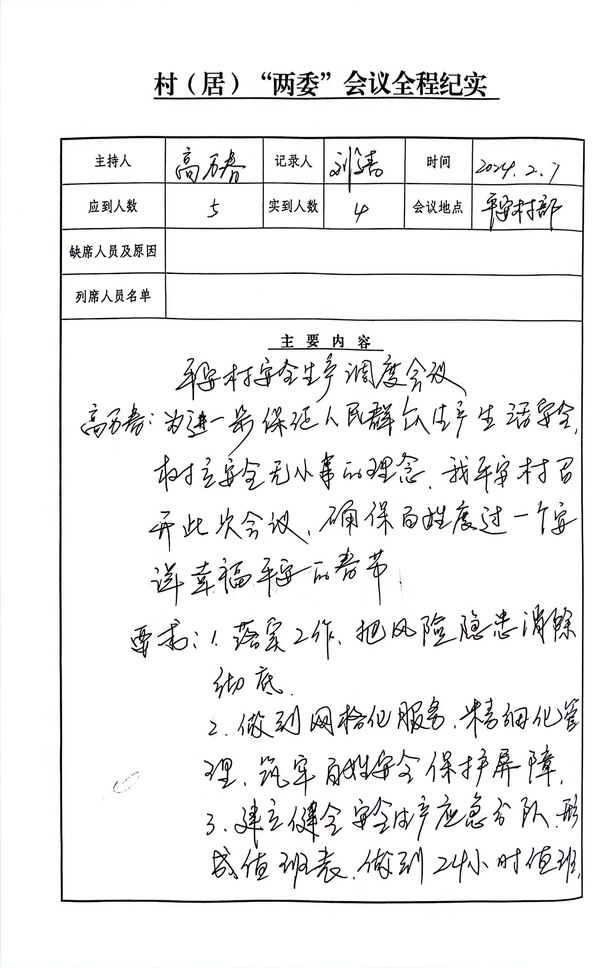 村（居）“两委”会议全程纪实
主持人 高万春 记录人 刘清 时间 2024.2.7
应到人数 5 实到人数 4 会议地点 平安村部
缺席人员及原因
列席人员名单
主要内容
平安村安全生产调度会议
高万春：为进一步保证人民群众生产生活安全，
树立安全无小事的理念，我平安村召
开此次会议，确保百姓度过一个安
详幸福平安的春节
要求：1.落实工作，把风险隐患消除
彻底.
2.做到网格化服务，精细化管
理，筑牢百姓安全保护屏障，
3.建立健全安全生产应急分队，形
成值班表，做到24小时值班，